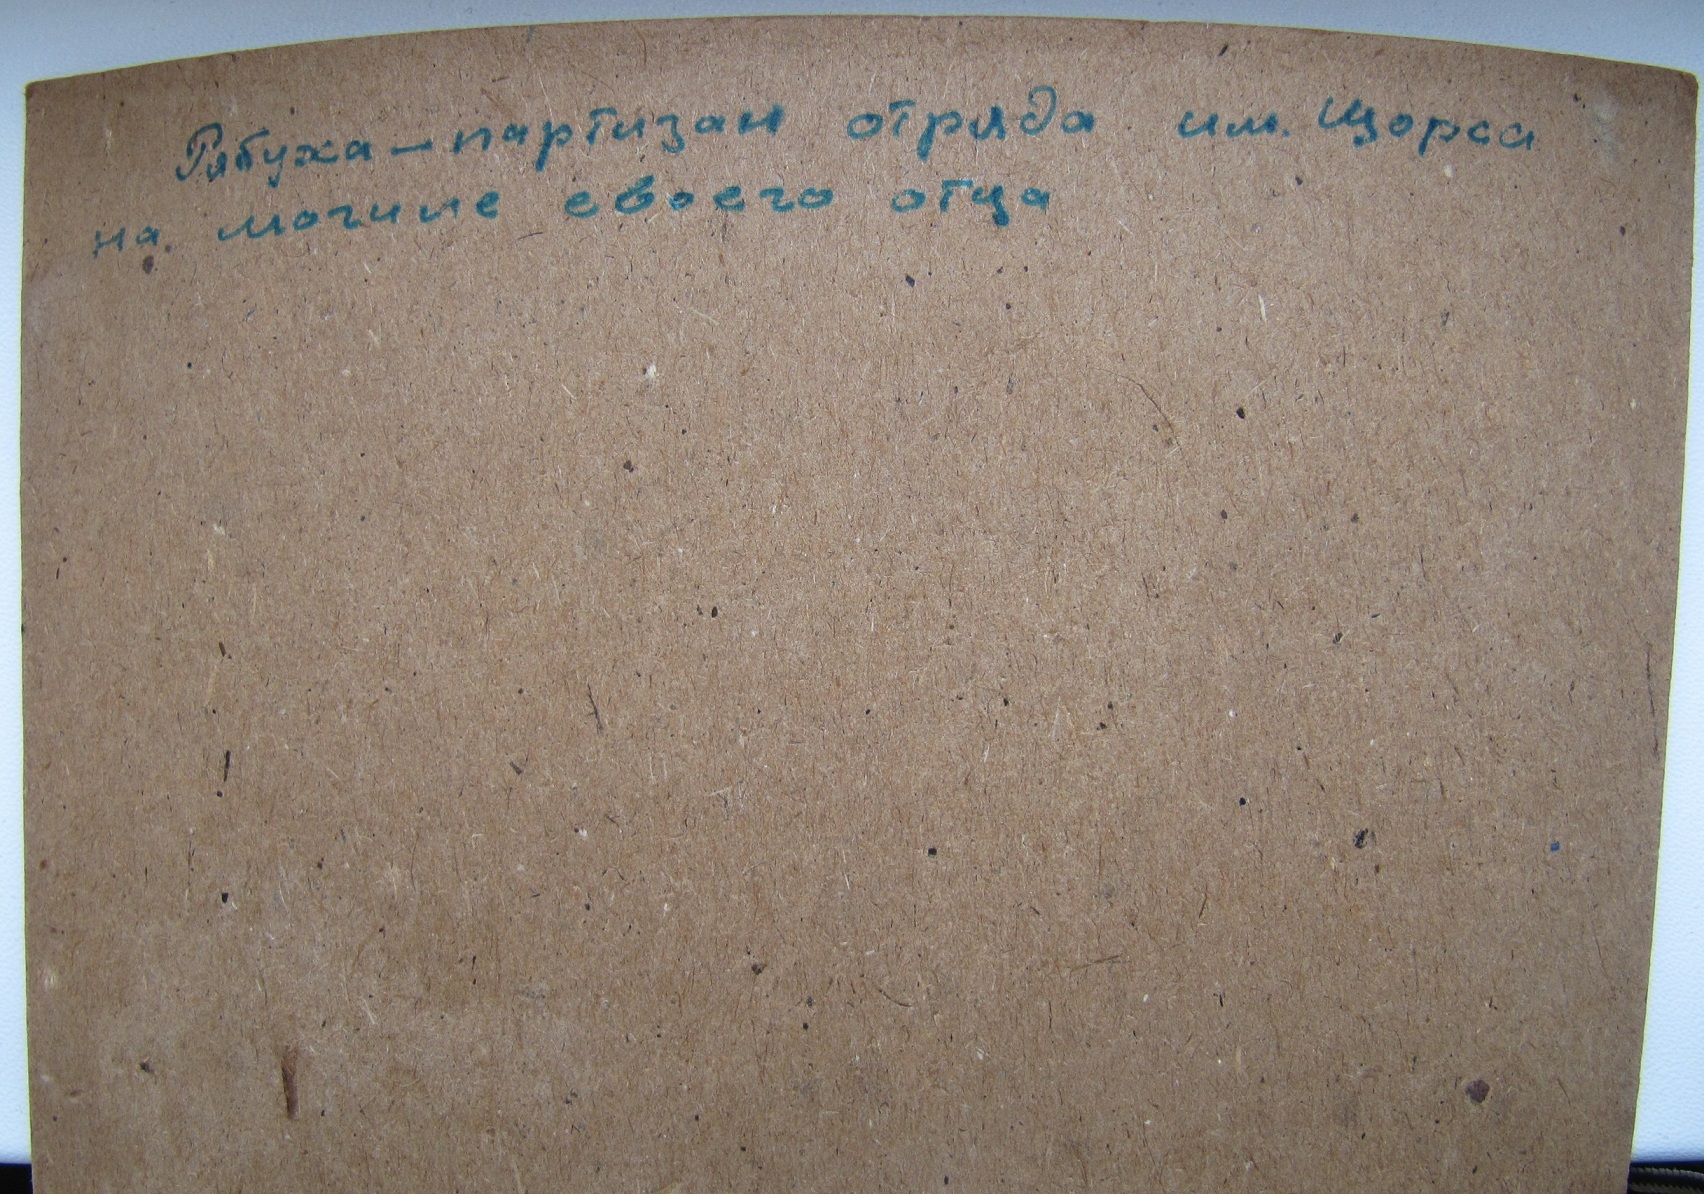 Рябуха — партизан отряда им. Щорса
на могиле своего отца